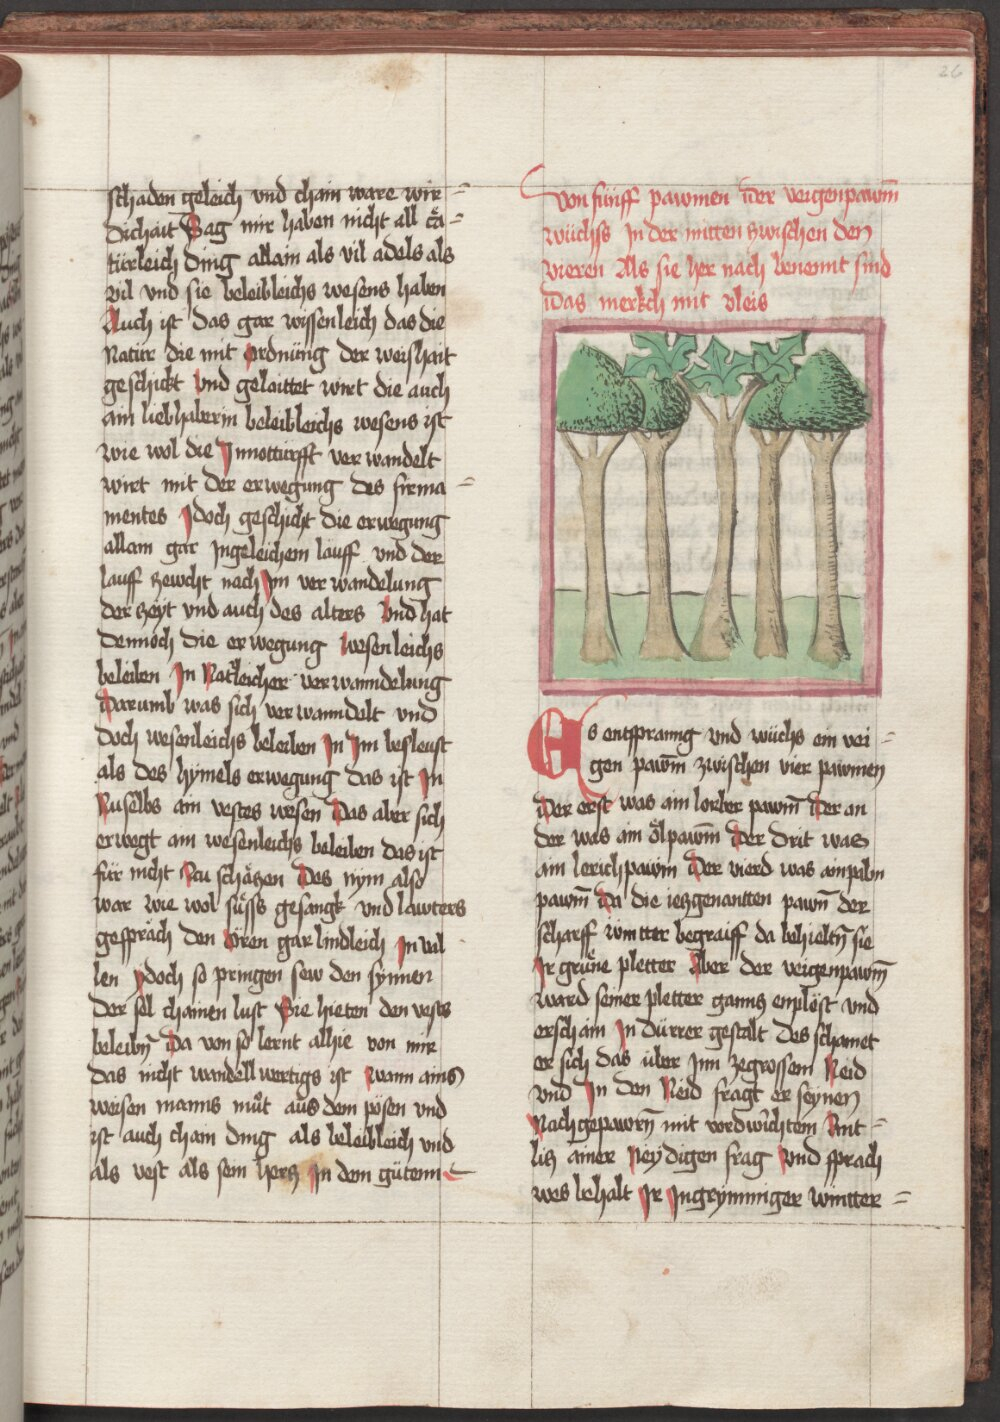 26
schaden geleich vnd chain ware wir=
dichait Sag mir haben nicht all cȧ=
türleich ding allain als vil adels als
vil vnd sie beleibleichs wesens haben
Auch ist das gar wissenleich das die
Natür die mit ordnüng der weishait
geschickt vnd gelaittet wirt die auch
ain liebhaberin beleibleichs wesens ist
wie wol die Innotturfft verwandelt
wirt mit der erwegung des firma=
mentes Idoch geschicht die erwegung
allain gar Ingeleichem lauff vnd der
lauff zewcht nach Im verwandelung
der zeyt vnd auch des alters Vnd hat
dennoch die erwegung wesenleichs
beleiben In Natleicher verwanndelung
Darumb was sich verwanndelt vnd
doch wesenleichs beleiben In Im besleust
als des hymels erwegung das ist In
Ruselbs ain vestes wesen Das aber sich
erwegt am wesenleichs beleiben das ist
für nicht Zu schäczen Des nym also
war wie wol süsss gesangk vnd lawters
gespräch den Oren gar lindleich In val
len ydoch so pringen sew den synnen
der sel chainen lust Sie hieten den vests
beleibn̄ Da von so lernt alhie von mir
das nicht wandellwertigs ist wann ains
weisen manns müt aus dem pösen vnd
ist auch chain ding als beleibleich vnd
als vest als sein hercz In dem gütenn
Von fünff pawmen Der veigenpawm̄
wüchss In der mitten zwischen den
vieren Als sie her nach benennt sind
Das merkch mit vleis
Es entspranng vnd wüchs ein vei=
gen pawm̄ zwischen vier pawmen
Der erst was ain lorber pawm̄ Der an
der was ain ölpawm̄ Der drit was
ain lerichpawm Der vierd was ain palm
pawm̄ Da die iczgenantten pawn̄ der
scharff wintter begraiff da behieltn̄ sie
Ir grüne pletter Aber der veigenpawm̄
ward seiner pletter ganncz enplöst vnd
erschain In dürrer gestalt Des schamet
er sich das über Inn zegrossem Neid
vnd In den Neid fragt er seynen
Nachgepawrn̄ mit verdwichtem Ant=
licz ainer Neydigen frag Vnd sprach
wes behalt Ir Ingrymmiger wintter=